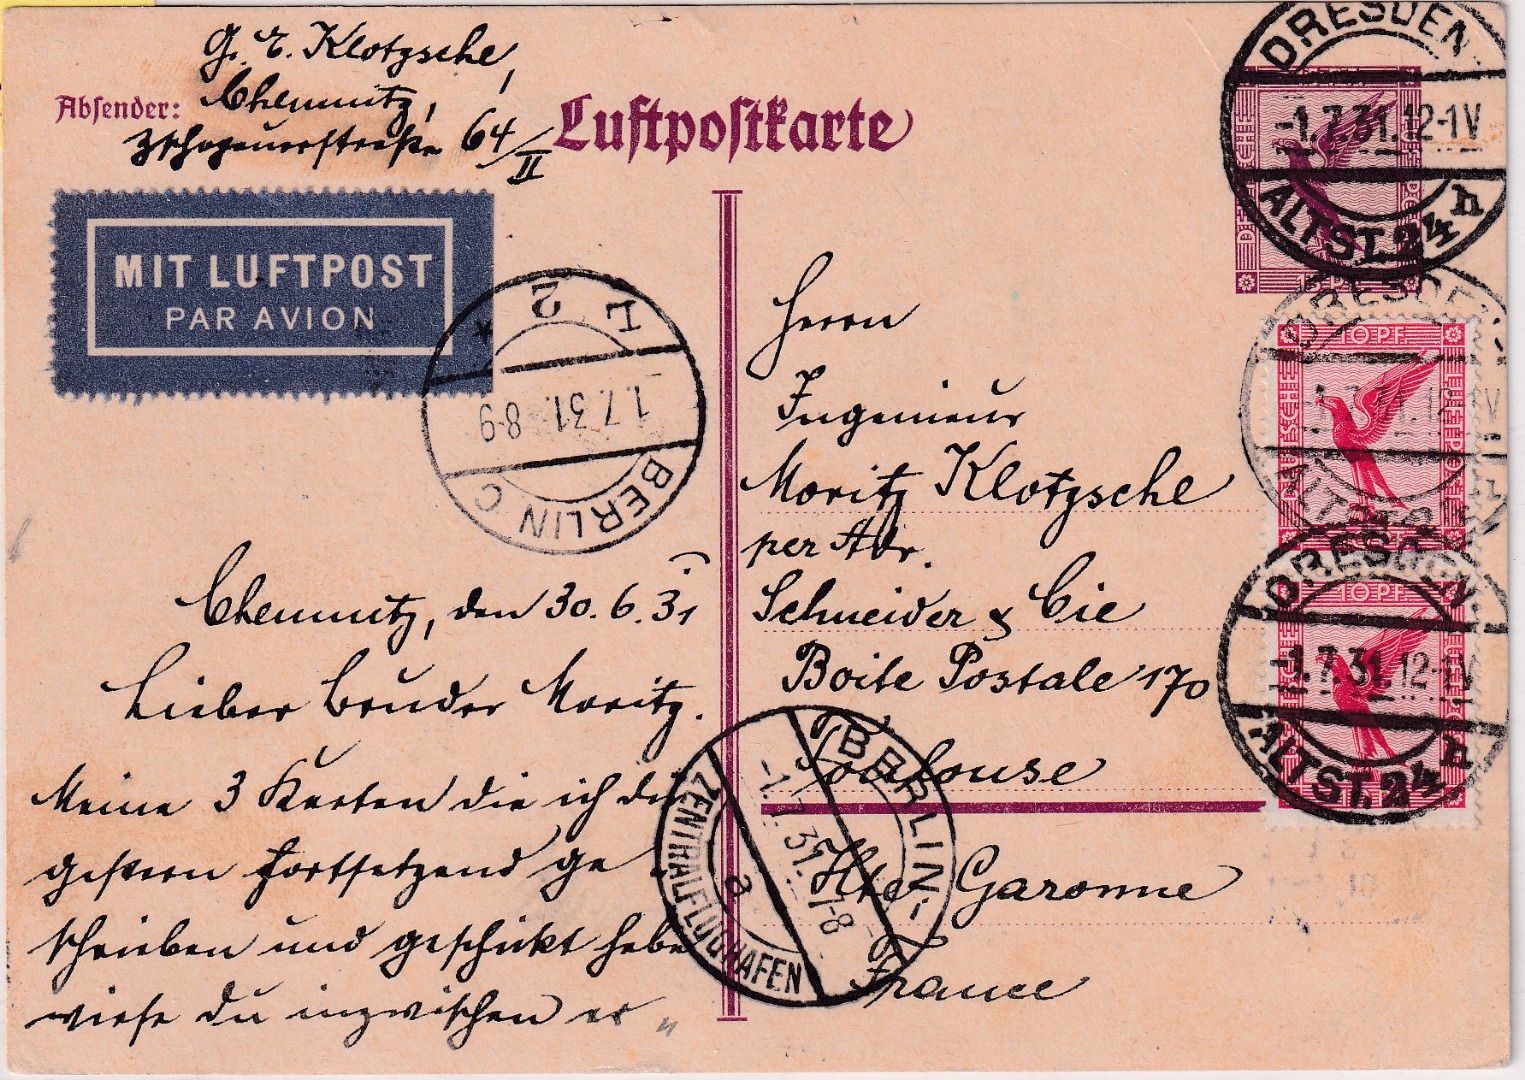 G. E. Klotzsche,
Absender: Chemnitz,
Zschopauerstraße 64/II
Luftpostkarte
MIT LUFTPOST
PAR AVION
DRESDEN
-1.7.31.12-1V
ALTST. 24 n
DEUTSCHE
15 PF
DRESDEN
1.7.31.12-1V
ALTST. 24
10 PF
DEUTSCHE
DRESDEN
-1.7.31.12-1V
ALTST. 24 n
10 PF
BERLIN C
1.7.31. 8-9
L 2
BERLIN-
-1.7.31. 7-8
a
ZENTRALFLUGHAFEN
Herrn
Ingenieur
Moritz Klotzsche
per Adr.
Schneider & Cie
Boite Postale 170
Toulouse
Hte Garonne
France
Chemnitz, den 30.6.31
Lieber Bruder Moritz.
Meine 3 Karten die ich dir
gestern fortsetzend ge-
schrieben und geschickt habe
wirst Du inzwischen er=